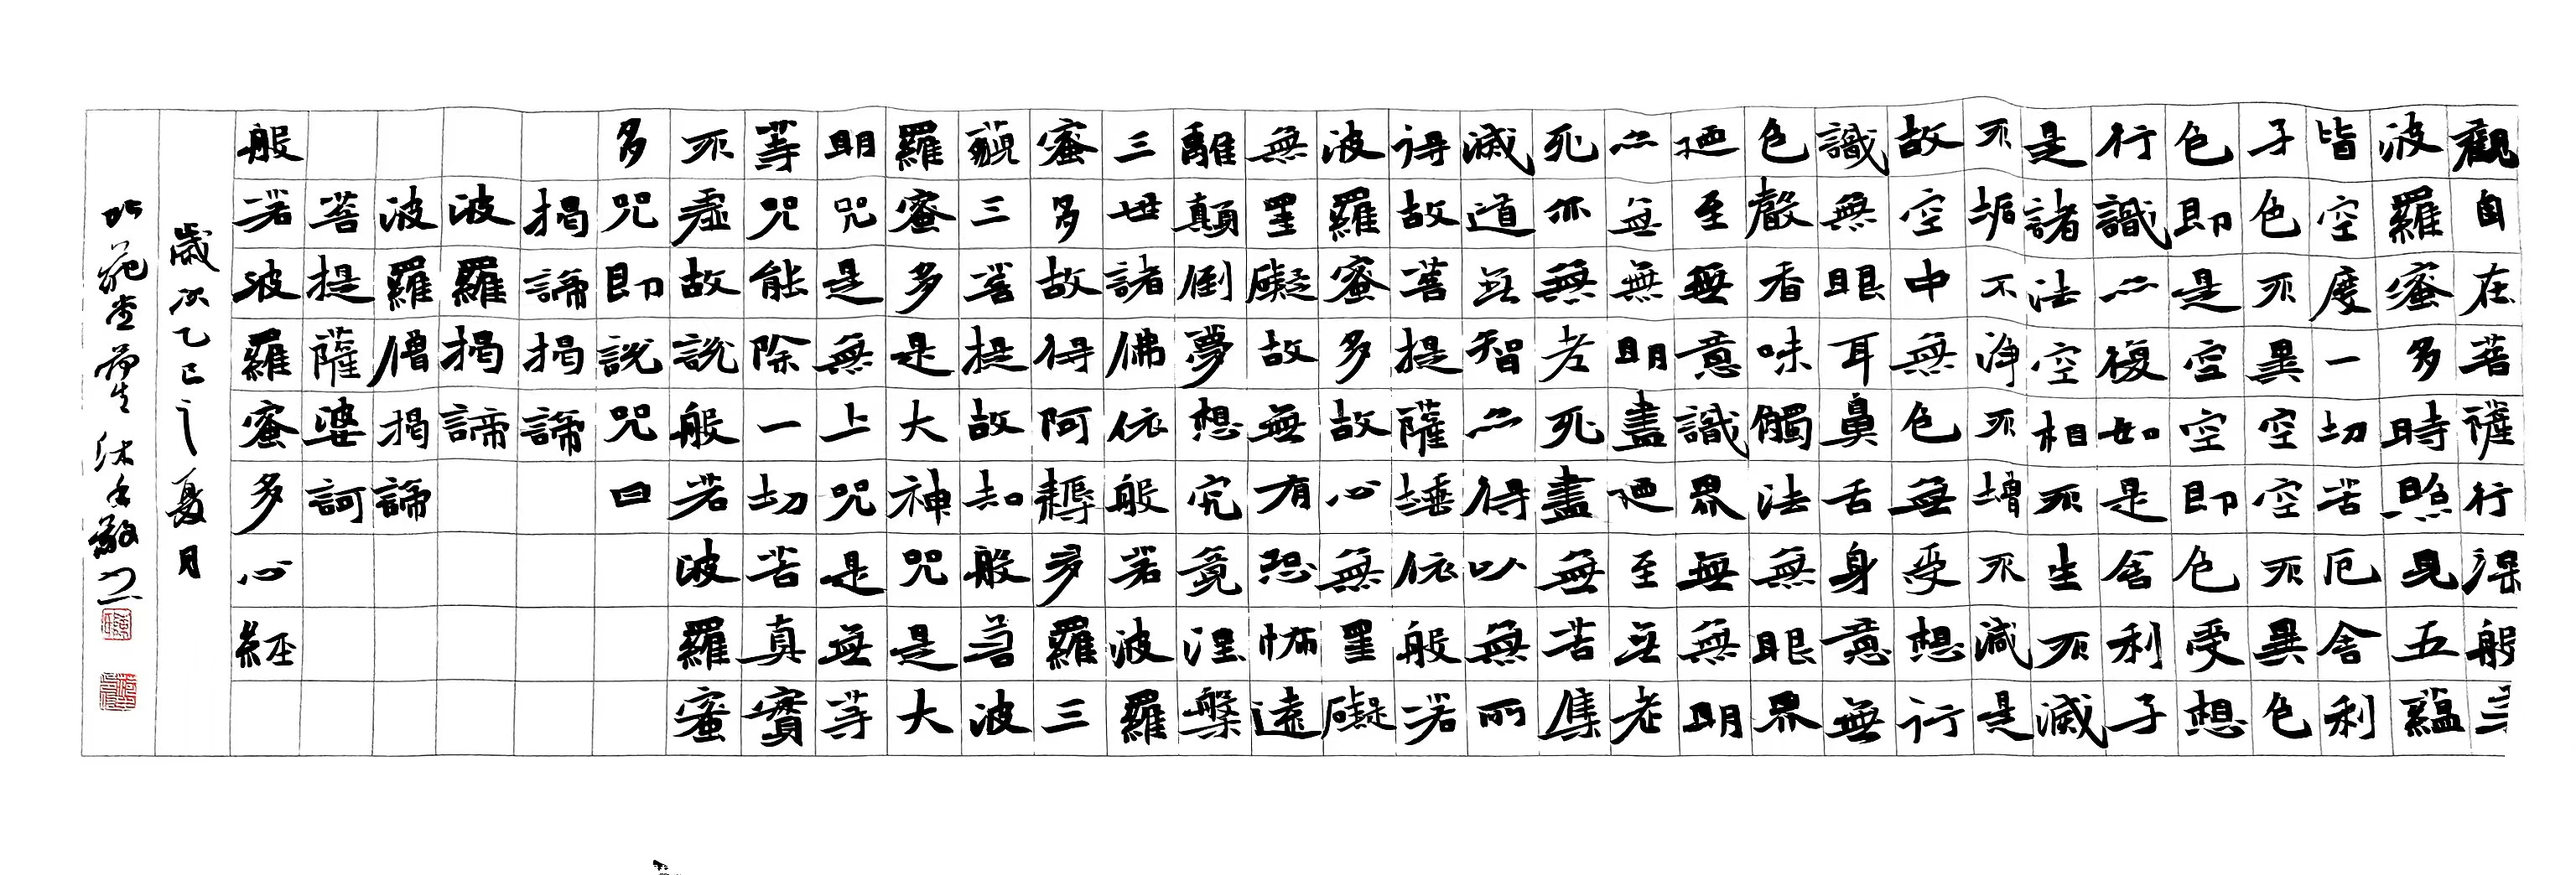 觀自在菩薩行深般若
波羅蜜多時照見五蘊
皆空度一切苦厄舍利
子色不異空空不異色
色即是空空即色受想
行識亦復如是舍利子
是諸法空相不生不滅
不垢不淨不增不減是
故空中無色無受想行
識無眼耳鼻舌身意無
色聲香味觸法無眼界
迺至無意識界無無明
亦無無明盡迺至無老
死亦無老死盡無苦集
滅道無智亦得以無所
得故菩提薩埵依般若
波羅蜜多故心無罣礙
無罣礙故無有恐怖遠
離顛倒夢想究竟涅槃
三世諸佛依般若波羅
蜜多故得阿耨多羅三
藐三菩提故知般若波
羅蜜多是大神咒是大
明咒是無上咒是無等
等咒能除一切苦真實
不虛故說般若波羅蜜
多咒即說咒曰
揭諦揭諦
波羅揭諦
波羅僧揭諦
菩提薩婆訶
般若波羅蜜多心經
歲次乙巳之夏月
沐手敬書